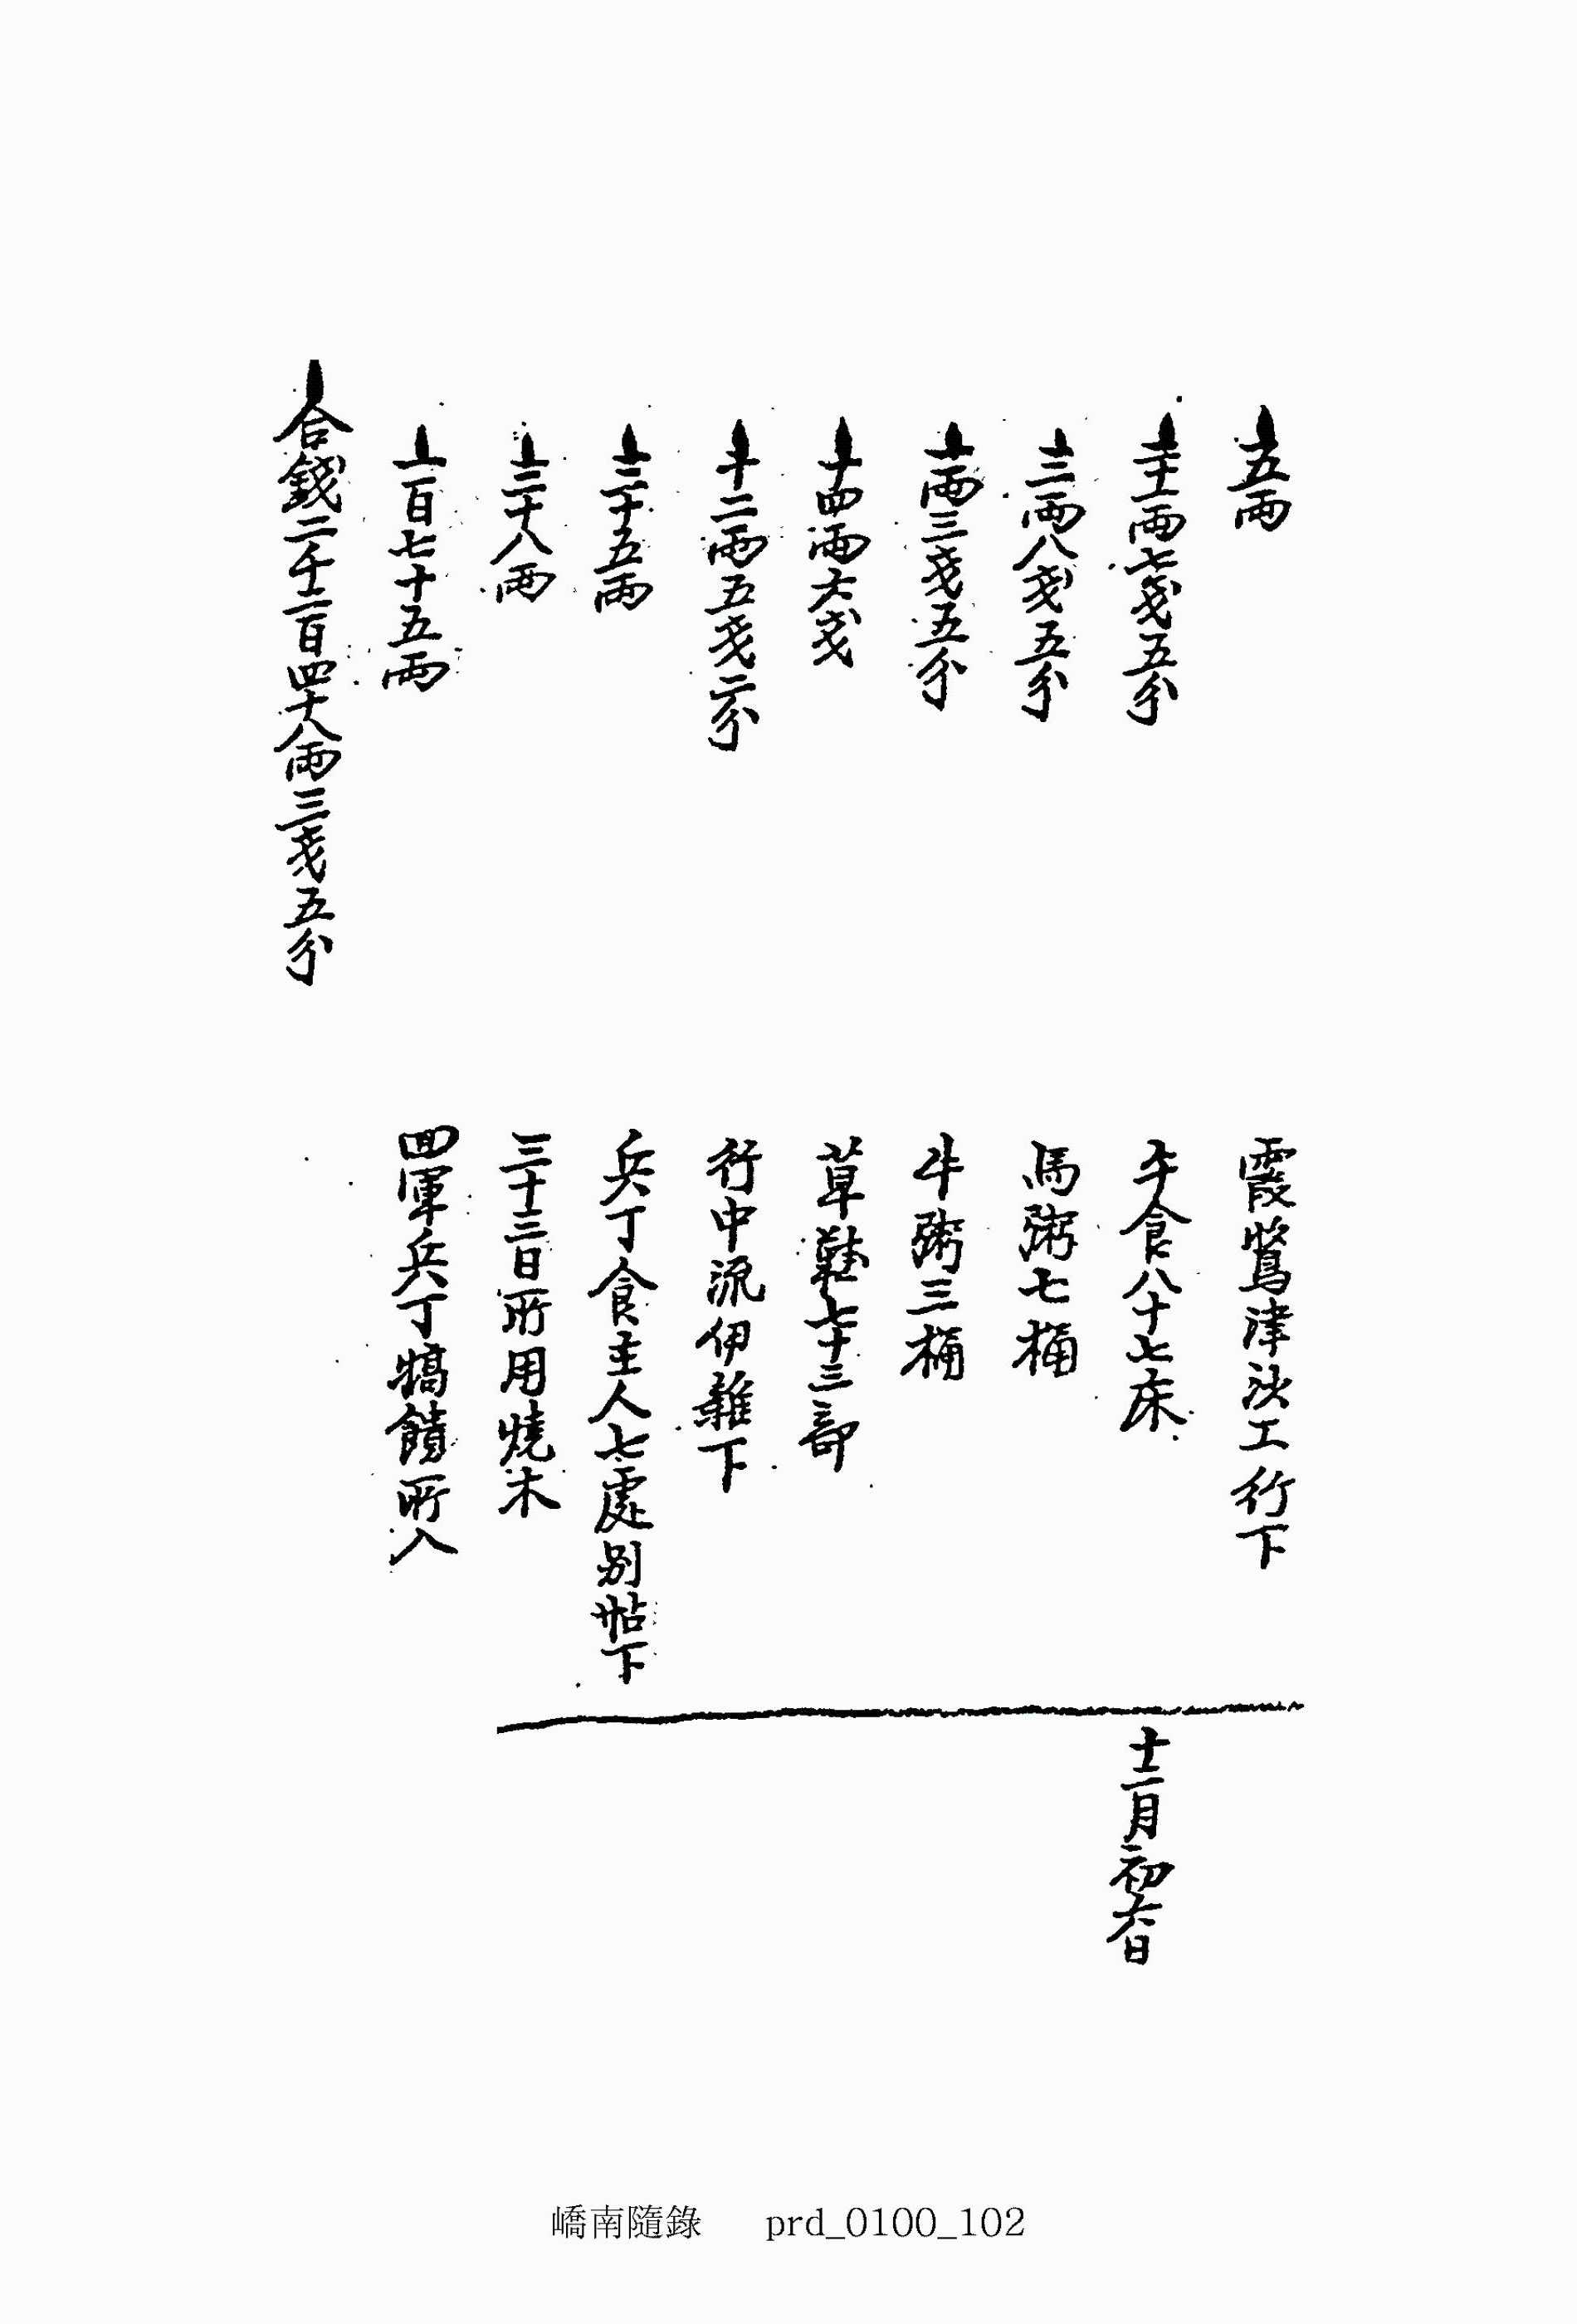 五兩 霞鷺津沙工行下
二十一兩七戔五分 午食八十七床 十二月初六日
三兩八戔五分 馬粥七桶
一兩三戔五分 牛粥三桶
十四兩六戔 草鞋七十三部
十二兩五戔二分 行中流伊雜下
三十五兩 兵丁食主人七處別帖下
三十八兩 三十三日所用燒木
一百七十五兩 四軍兵丁犒饋所入
合錢二千二百四十八兩三戔五分
嶠南隨錄 prd_0100_102